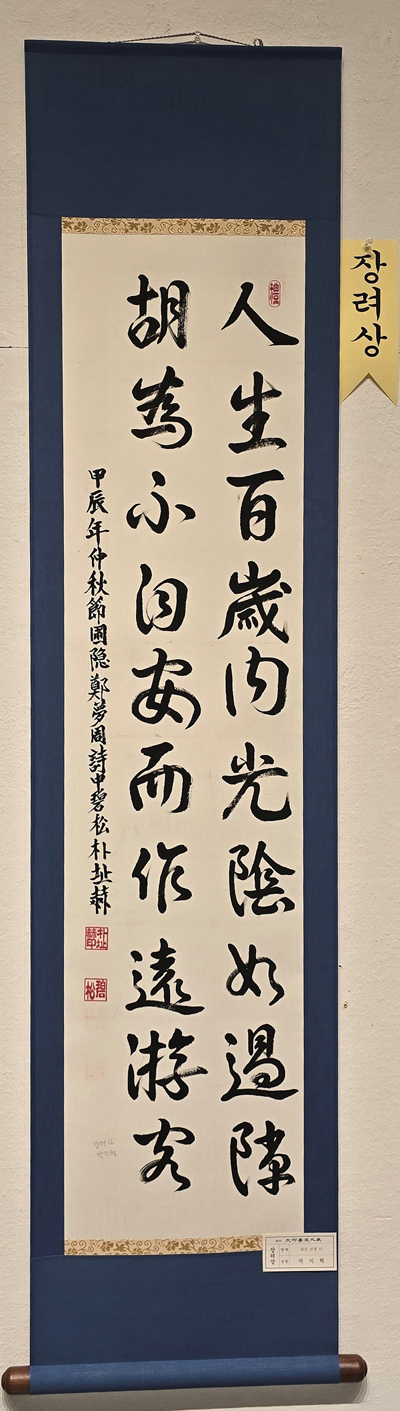 人生百歲內光陰如過隙
胡爲不自安而作遠游客
甲辰年仲秋節圃隐鄭夢周詩中碧松朴址赫
장려상
장려상
박지혁